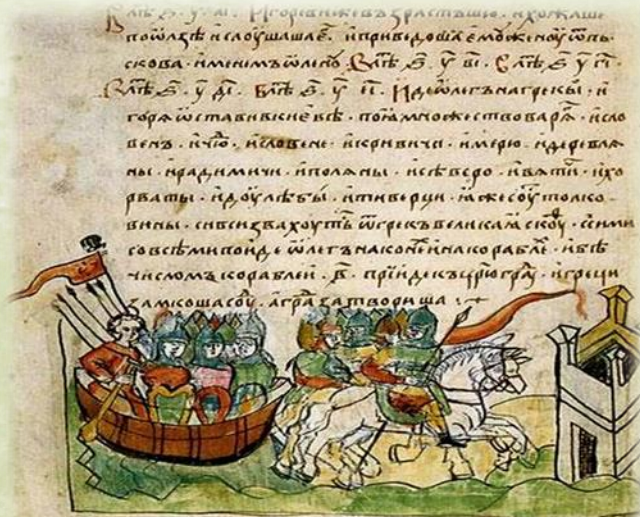 в лѣт҃ ҂ѕ҃ . у҃ . а҃і . Игоревижевъзрастъшю . ихожаше
поѡлзѣ ислоушашаꙗ̑ . иприведоша емоуженоу ѿпь
скова . именемъ ѡленоу . в лѣт҃ ҂ѕ҃ . у҃ . в҃і . в лѣт҃ ҂ѕ҃ . у҃ . г҃і .
в лѣт҃ ҂ѕ҃ . у҃ . д҃і . в лѣт҃ ҂ѕ҃ . у҃ . е҃і . Идеѡлегънагрекы . и
горѧ ѡставивкиевѣ . поꙗмножествоварѧ . исло
венъ . ичю . исловене . икривичи . имерю . идеревлѧ
ны . ирадимичи . иполѧны . исѣверо . ивѧти . ихо
рваты . идоулѣбы . итиверци . ꙗжесоутолко
вины . сивсизвахоутьс ѿгрекъ великаꙗ скоу . ссими
совсѣмипоиде ѡлегънаконеинакораблѣ . ибѣ
числомъкораблеи . в҃ . приидекъцр҃югра . игреци
замкошасоу . аградзатвориша